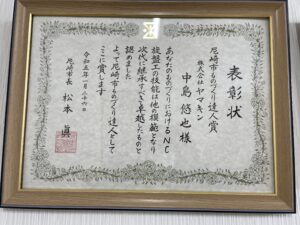 表彰状
尼崎市ものづくり達人賞
株式会社ヤマキン
中島 悠也様
あなたのものづくりにおけるNC
旋盤工の技能は他の模範となり
次代に継承すべき卓越したものと
認めました
よって尼崎市ものづくり達人として
ここに賞します
令和五年一月二十六日
尼崎市長 松本 眞